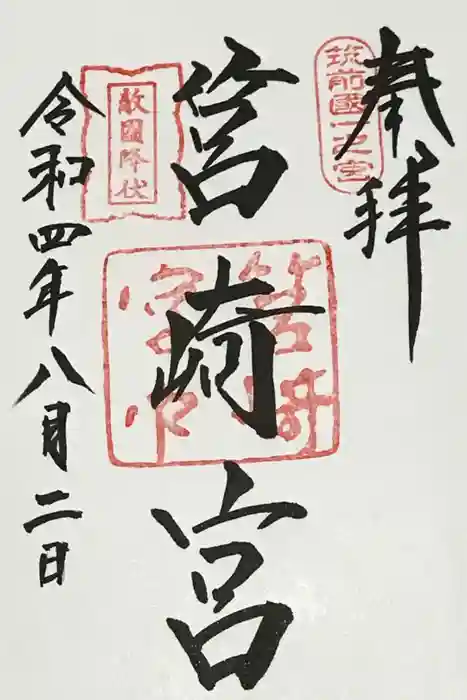 奉拝
筑前國一之宮
筥崎宮
筥崎
宮印
敵國降伏
令和四年八月二日